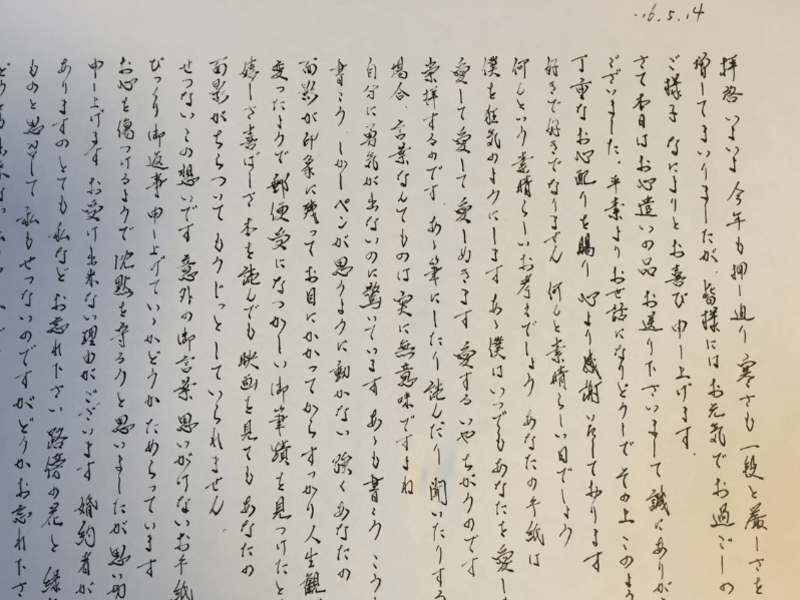 '16.5.14
拝啓 いよいよ今年も押し迫り 寒さも一段と厳しさを
増してまいりましたが、皆様にはお元気でお過ごしの
ご様子 なによりとお喜び申し上げます。
さて本日はお心遣いの品 お送り下さいまして 誠にありが
ございました。平素よりお世話になりどうしで その上このよう
丁重なお心配りを賜り 心より感謝いたしております
好きで好きでなりません 何んと素晴らしい日でしょう
何んという素晴らしいお考えでしょう あなたの手紙は
僕を狂気のようにします あゝ僕はいつでもあなたを愛し
愛して愛して愛しぬきます 愛する いやちがうのです
崇拝するのです。あゝ筆にしたり読んだり聞いたりする
場合、言葉なんてものは実に無意味ですよね
自分に勇気が出ないのに驚いています あゝも書こう こう
書こう、しかしペンが思うように動かない 強くあなたの
面影が印象に残って お目にかかってからすっかり人生観
変ったようで 郵便受になつかしい御筆蹟を見つけたと
嬉しさ喜ばしさ 本を読んでも映画を見てもあなたの
面影がちらついて もうじっとしていられません
せつないこの想いです 意外の御言葉 思いがけないお手紙
びっくり御返事申し上げていゝかどうかためらっています
お心を傷つけるようで 沈黙を守ろうと思いましたが思い切
申し上げます お受け出来ない理由がございます 婚約者が
ありますの とても私などお忘れ下さい 路傍の花と
ものと思召して 私もせつないのですが どうかお忘れ下さ